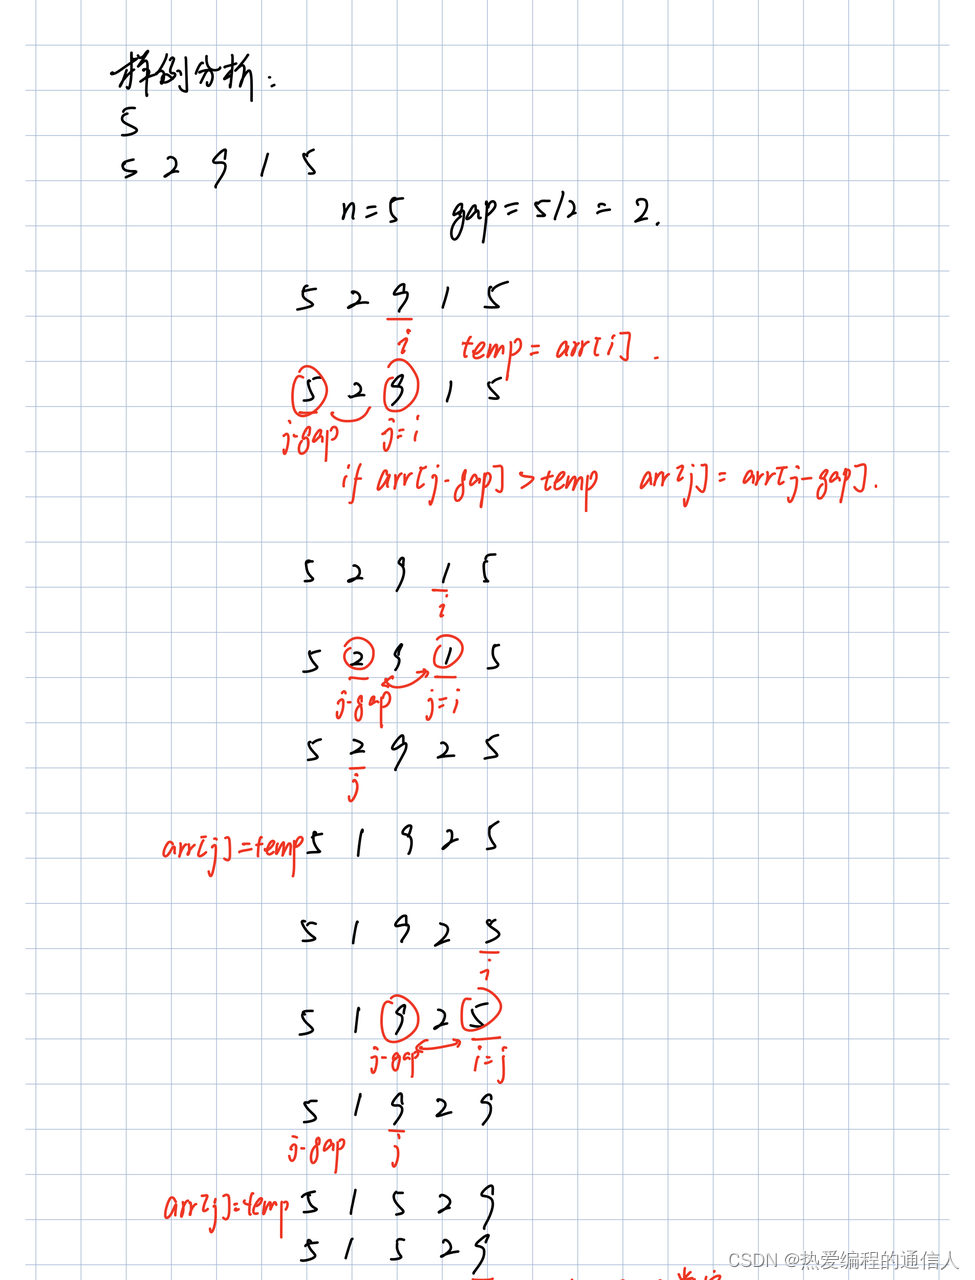 样例分析:
5
5 2 9 1 5
n=5 gap=5/2=2.
5 2 9 1 5
i temp=arr[i].
5 2 9 1 5
j-gap j=i
if arr[j-gap]>temp arr[j]=arr[j-gap].
5 2 9 1 5
i
5 2 9 1 5
j-gap j=i
5 2 9 2 5
j
arr[j]=temp 5 1 9 2 5
5 1 9 2 5
i
5 1 9 2 5
j-gap i=j
5 1 9 2 9
j-gap j
arr[j]=temp 5 1 5 2 9
5 1 5 2 9
CSDN @热爱编程的通信人